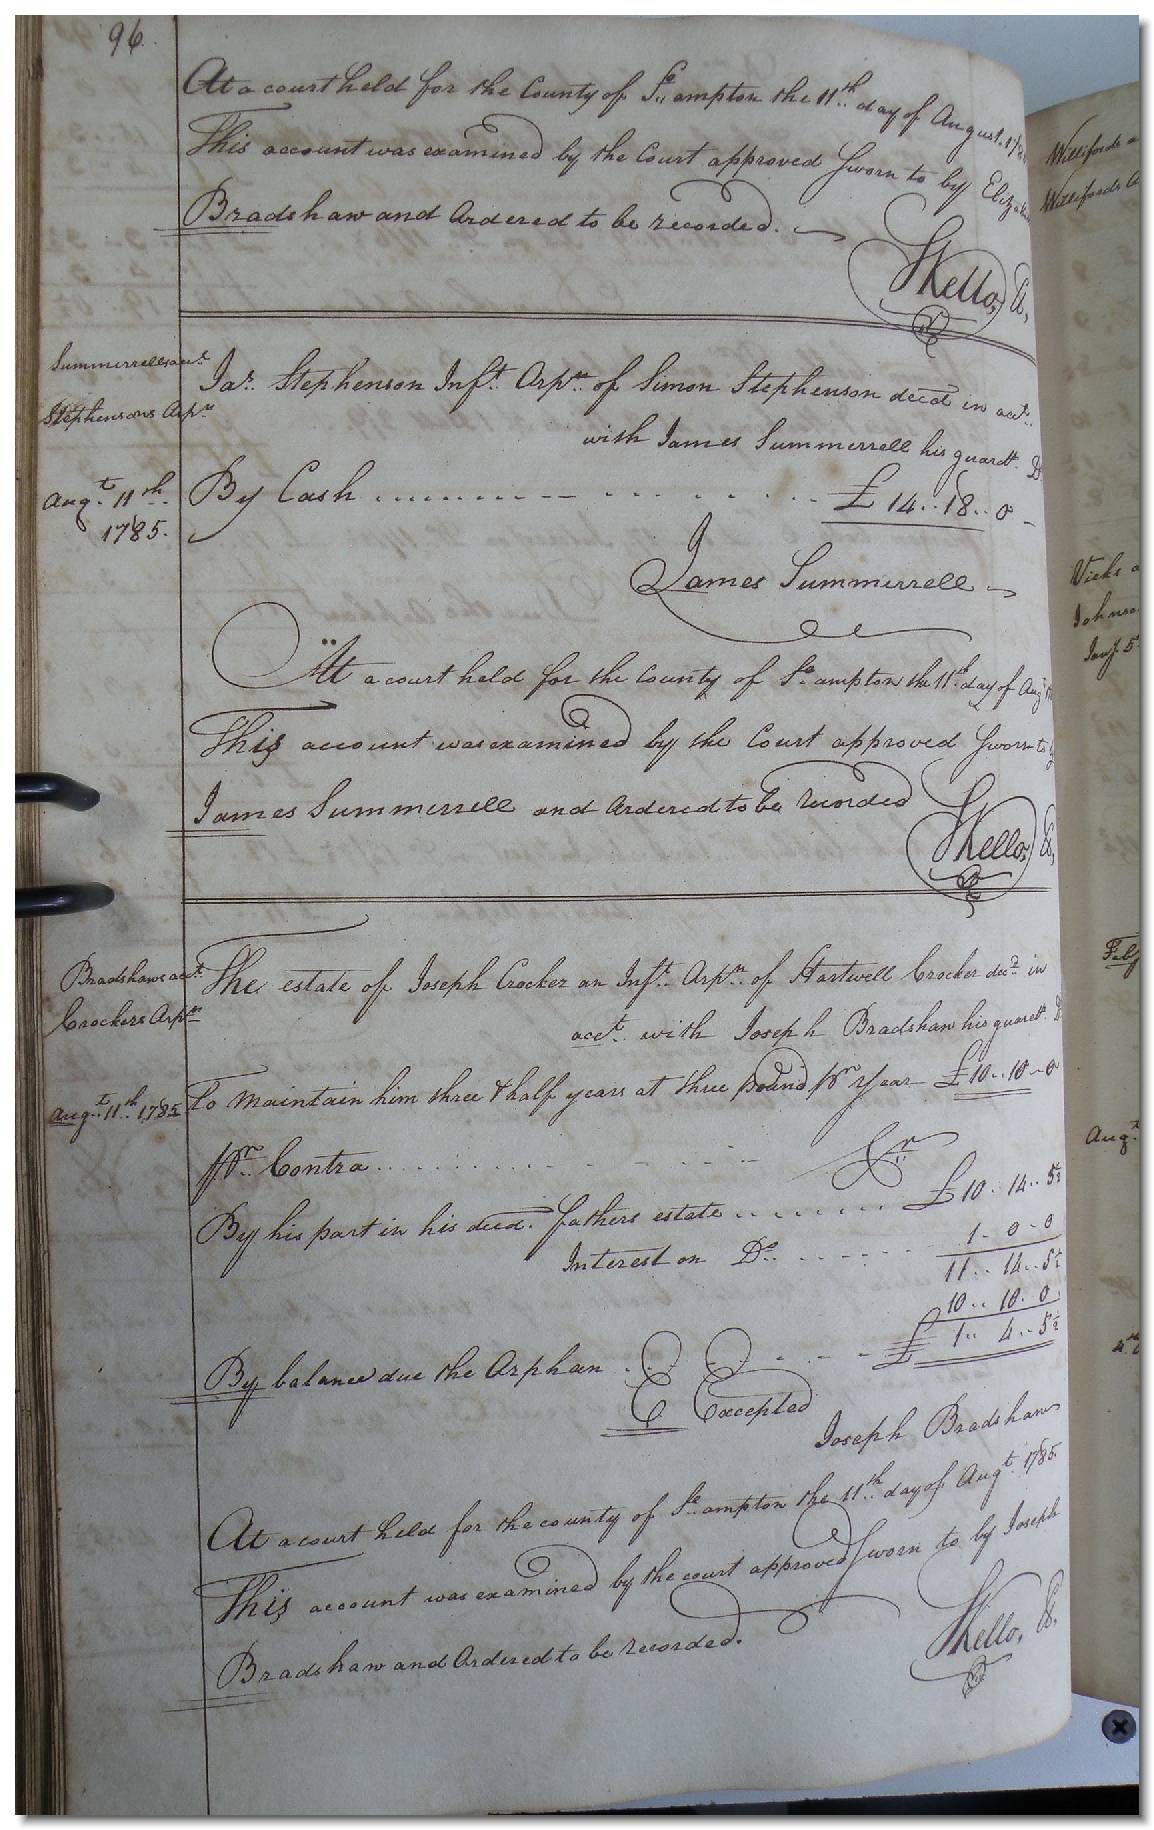 96.
At a court held for the County of So.ampton the 11th day of August.
This account was examined by the Court approved Sworn to by
Bradshaw and Ordered to be recorded.
SKello, Cl,
Summerrells acct.
Stephensons Orpn
Jas. Stephenson Inft. Orpn. of Simon Stephenson decd in acct.
with James Summerrell his guardn. Dr
Augt. 11th.
1785.
By Cash £ 14..18..0
James Summerrell
At a court held for the County of So.ampton the 11th day of Augt
This account was examined by the Court approved Sworn to by
James Summerrell and Ordered to be recorded
SKello, Cl,
Bradshaws acct.
Crockers Orpn
The estate of Joseph Crocker an Inft. Orpn. of Hartwell Crocker decd. in
acct. with Joseph Bradshaw his guardn. Dr
Augt. 11th. 1785
To maintain him three & half years at three pound pr Year £10..10..0
pr. Contra Cr
By his part in his decd. fathers estate £10..14..5½
Interest on Do. 1..0..0
11..14..5½
10..10..0
By balance due the Orphan £1..4..5½
E Excepted
Joseph Bradshaw
At a court held for the county of So.ampton the 11th. day of Augt. 1785.
This account was examined by the court approved Sworn to by Joseph
Bradshaw and Ordered to be recorded.
SKello, Cl.
Willifords
Willifords
Vicks
Augt.